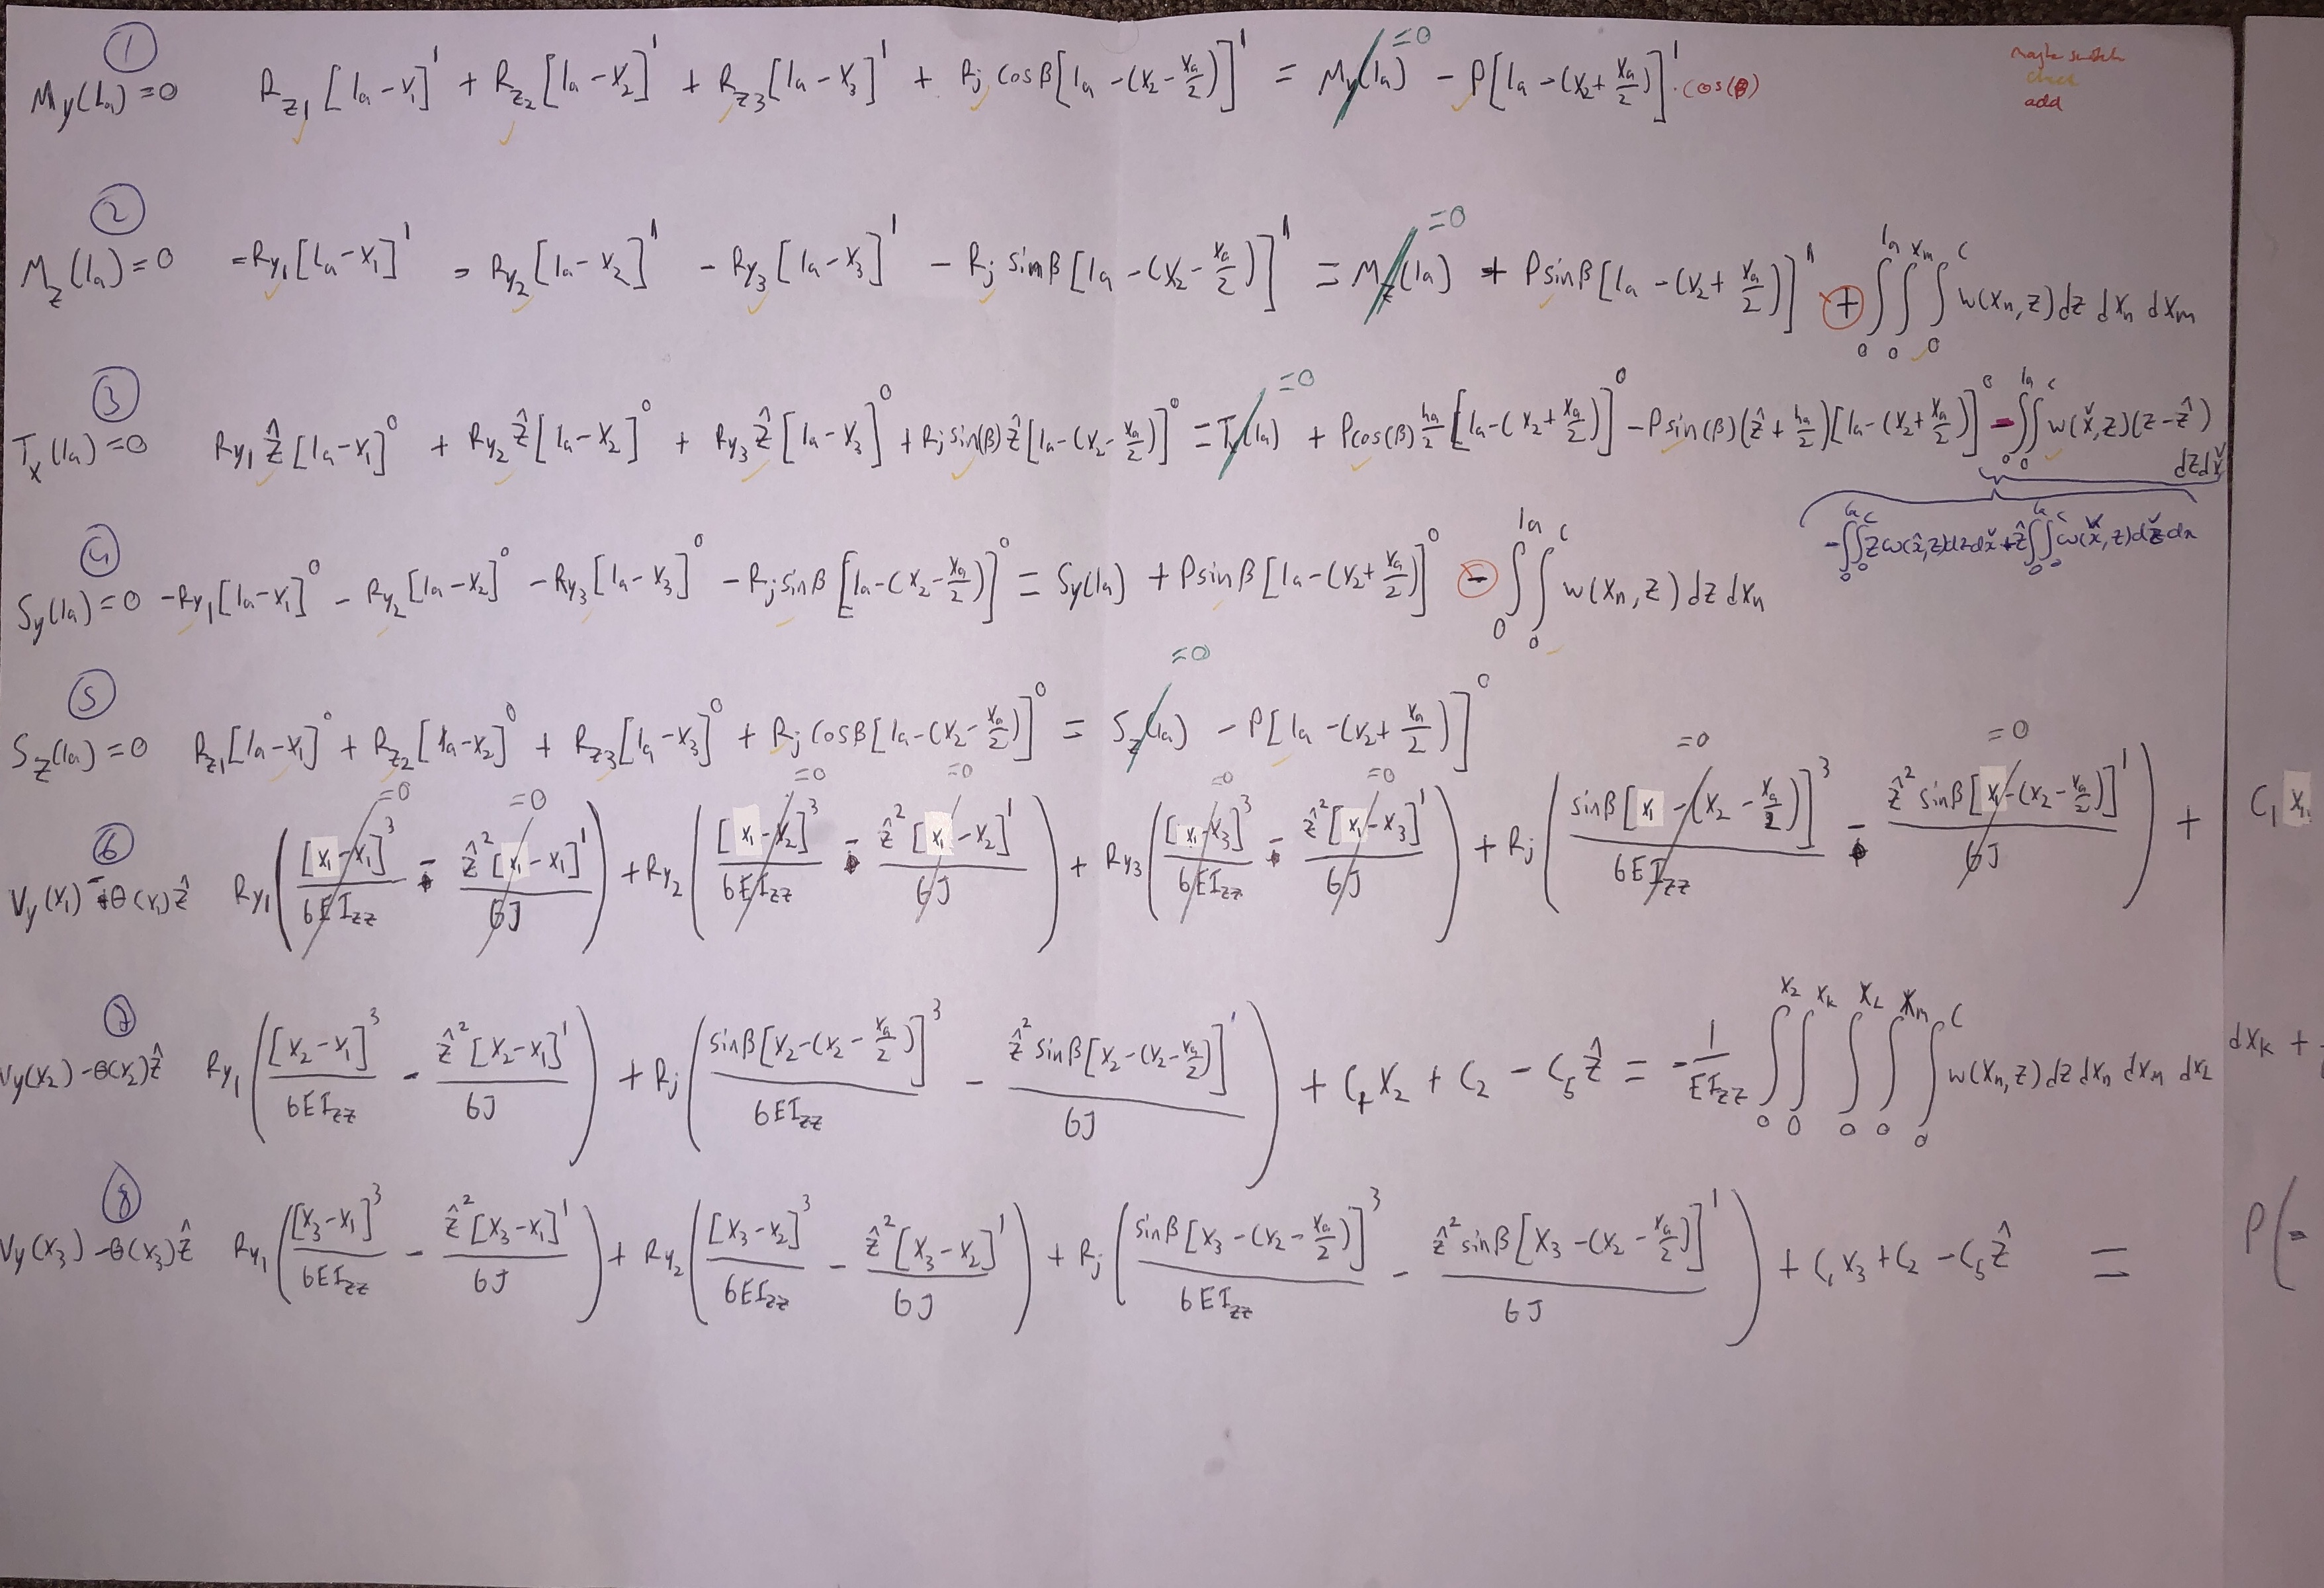 ①
M_y(l_a)=0 R_z1 [l_a-x_1]^1 + R_z2 [l_a-x_2]^1 + R_z3 [l_a-x_3]^1 + R_j cosβ[l_a-(x_2-x_a/2)]^1 = M_y(l_a) =0 - P[l_a-(x_2+x_a/2)]^1 · cos(β)
maybe switch
check
add
②
M_z(l_a)=0 -R_y1 [l_a-x_1]^1 - R_y2 [l_a-x_2]^1 - R_y3 [l_a-x_3]^1 - R_j sinβ [l_a-(x_2-x_a/2)]^1 = M_z(l_a) =0 + P sinβ [l_a-(x_2+x_a/2)]^1 + ∫_0^{l_a} ∫_0^{x_m} ∫_0^C w(x_n,z) dz dx_n dx_m
③
T_x(l_a)=0 R_y1 ẑ [l_a-x_1]^0 + R_y2 ẑ [l_a-x_2]^0 + R_y3 ẑ [l_a-x_3]^0 + R_j sin(β) ẑ [l_a-(x_2-x_a/2)]^0 = T_x(l_a) =0 + P cos(β) h_a/2 [l_a-(x_2+x_a/2)]^0 - P sin(β)(ẑ+h_a/2)[l_a-(x_2+x_a/2)]^0 - ∫_0^{l_a} ∫_0^C w(x,z)(z-ẑ) dz dx
- ∫_0^{l_a} ∫_0^C z w(x,z) dz dx + ẑ ∫_0^{l_a} ∫_0^C w(x,z) dz dx
④
S_y(l_a)=0 -R_y1 [l_a-x_1]^0 - R_y2 [l_a-x_2]^0 - R_y3 [l_a-x_3]^0 - R_j sinβ [l_a-(x_2-x_a/2)]^0 = S_y(l_a) + P sinβ [l_a-(x_2+x_a/2)]^0 - ∫_0^{l_a} ∫_0^C w(x_n,z) dz dx_n
⑤
S_z(l_a)=0 R_z1 [l_a-x_1]^0 + R_z2 [l_a-x_2]^0 + R_z3 [l_a-x_3]^0 + R_j cosβ [l_a-(x_2-x_a/2)]^0 = S_z(l_a) =0 - P[l_a-(x_2+x_a/2)]^0
⑥
V_y(x_1) - θ(x_1)ẑ R_y1 ([x_1-x_1]^3/6EI_zz =0 - ẑ^2[x_1-x_1]^1/GJ =0) + R_y2 ([x_1-x_2]^3/6EI_zz =0 - ẑ^2[x_1-x_2]^1/GJ =0) + R_y3 ([x_1-x_3]^3/6EI_zz =0 - ẑ^2[x_1-x_3]^1/GJ =0) + R_j (sinβ[x_1-(x_2-x_a/2)]^3/6EI_zz =0 - ẑ^2 sinβ[x_1-(x_2-x_a/2)]^1/GJ =0) + C_1 x_1
⑦
V_y(x_2) - θ(x_2)ẑ R_y1 ([x_2-x_1]^3/6EI_zz - ẑ^2[x_2-x_1]^1/GJ) + R_j (sinβ[x_2-(x_2-x_a/2)]^3/6EI_zz - ẑ^2 sinβ[x_2-(x_2-x_a/2)]^1/GJ) + C_1 x_2 + C_2 - C_5 ẑ = -1/EI_zz ∫_0^{x_2} ∫_0^{x_k} ∫_0^{x_L} ∫_0^{x_m} ∫_0^C w(x_n,z) dz dx_n dx_m dx_L dx_k +
⑧
V_y(x_3) - θ(x_3)ẑ R_y1 ([x_3-x_1]^3/6EI_zz - ẑ^2[x_3-x_1]^1/GJ) + R_y2 ([x_3-x_2]^3/6EI_zz - ẑ^2[x_3-x_2]^1/GJ) + R_j (sinβ[x_3-(x_2-x_a/2)]^3/6EI_zz - ẑ^2 sinβ[x_3-(x_2-x_a/2)]^1/GJ) + C_1 x_3 + C_2 - C_5 ẑ = P(-